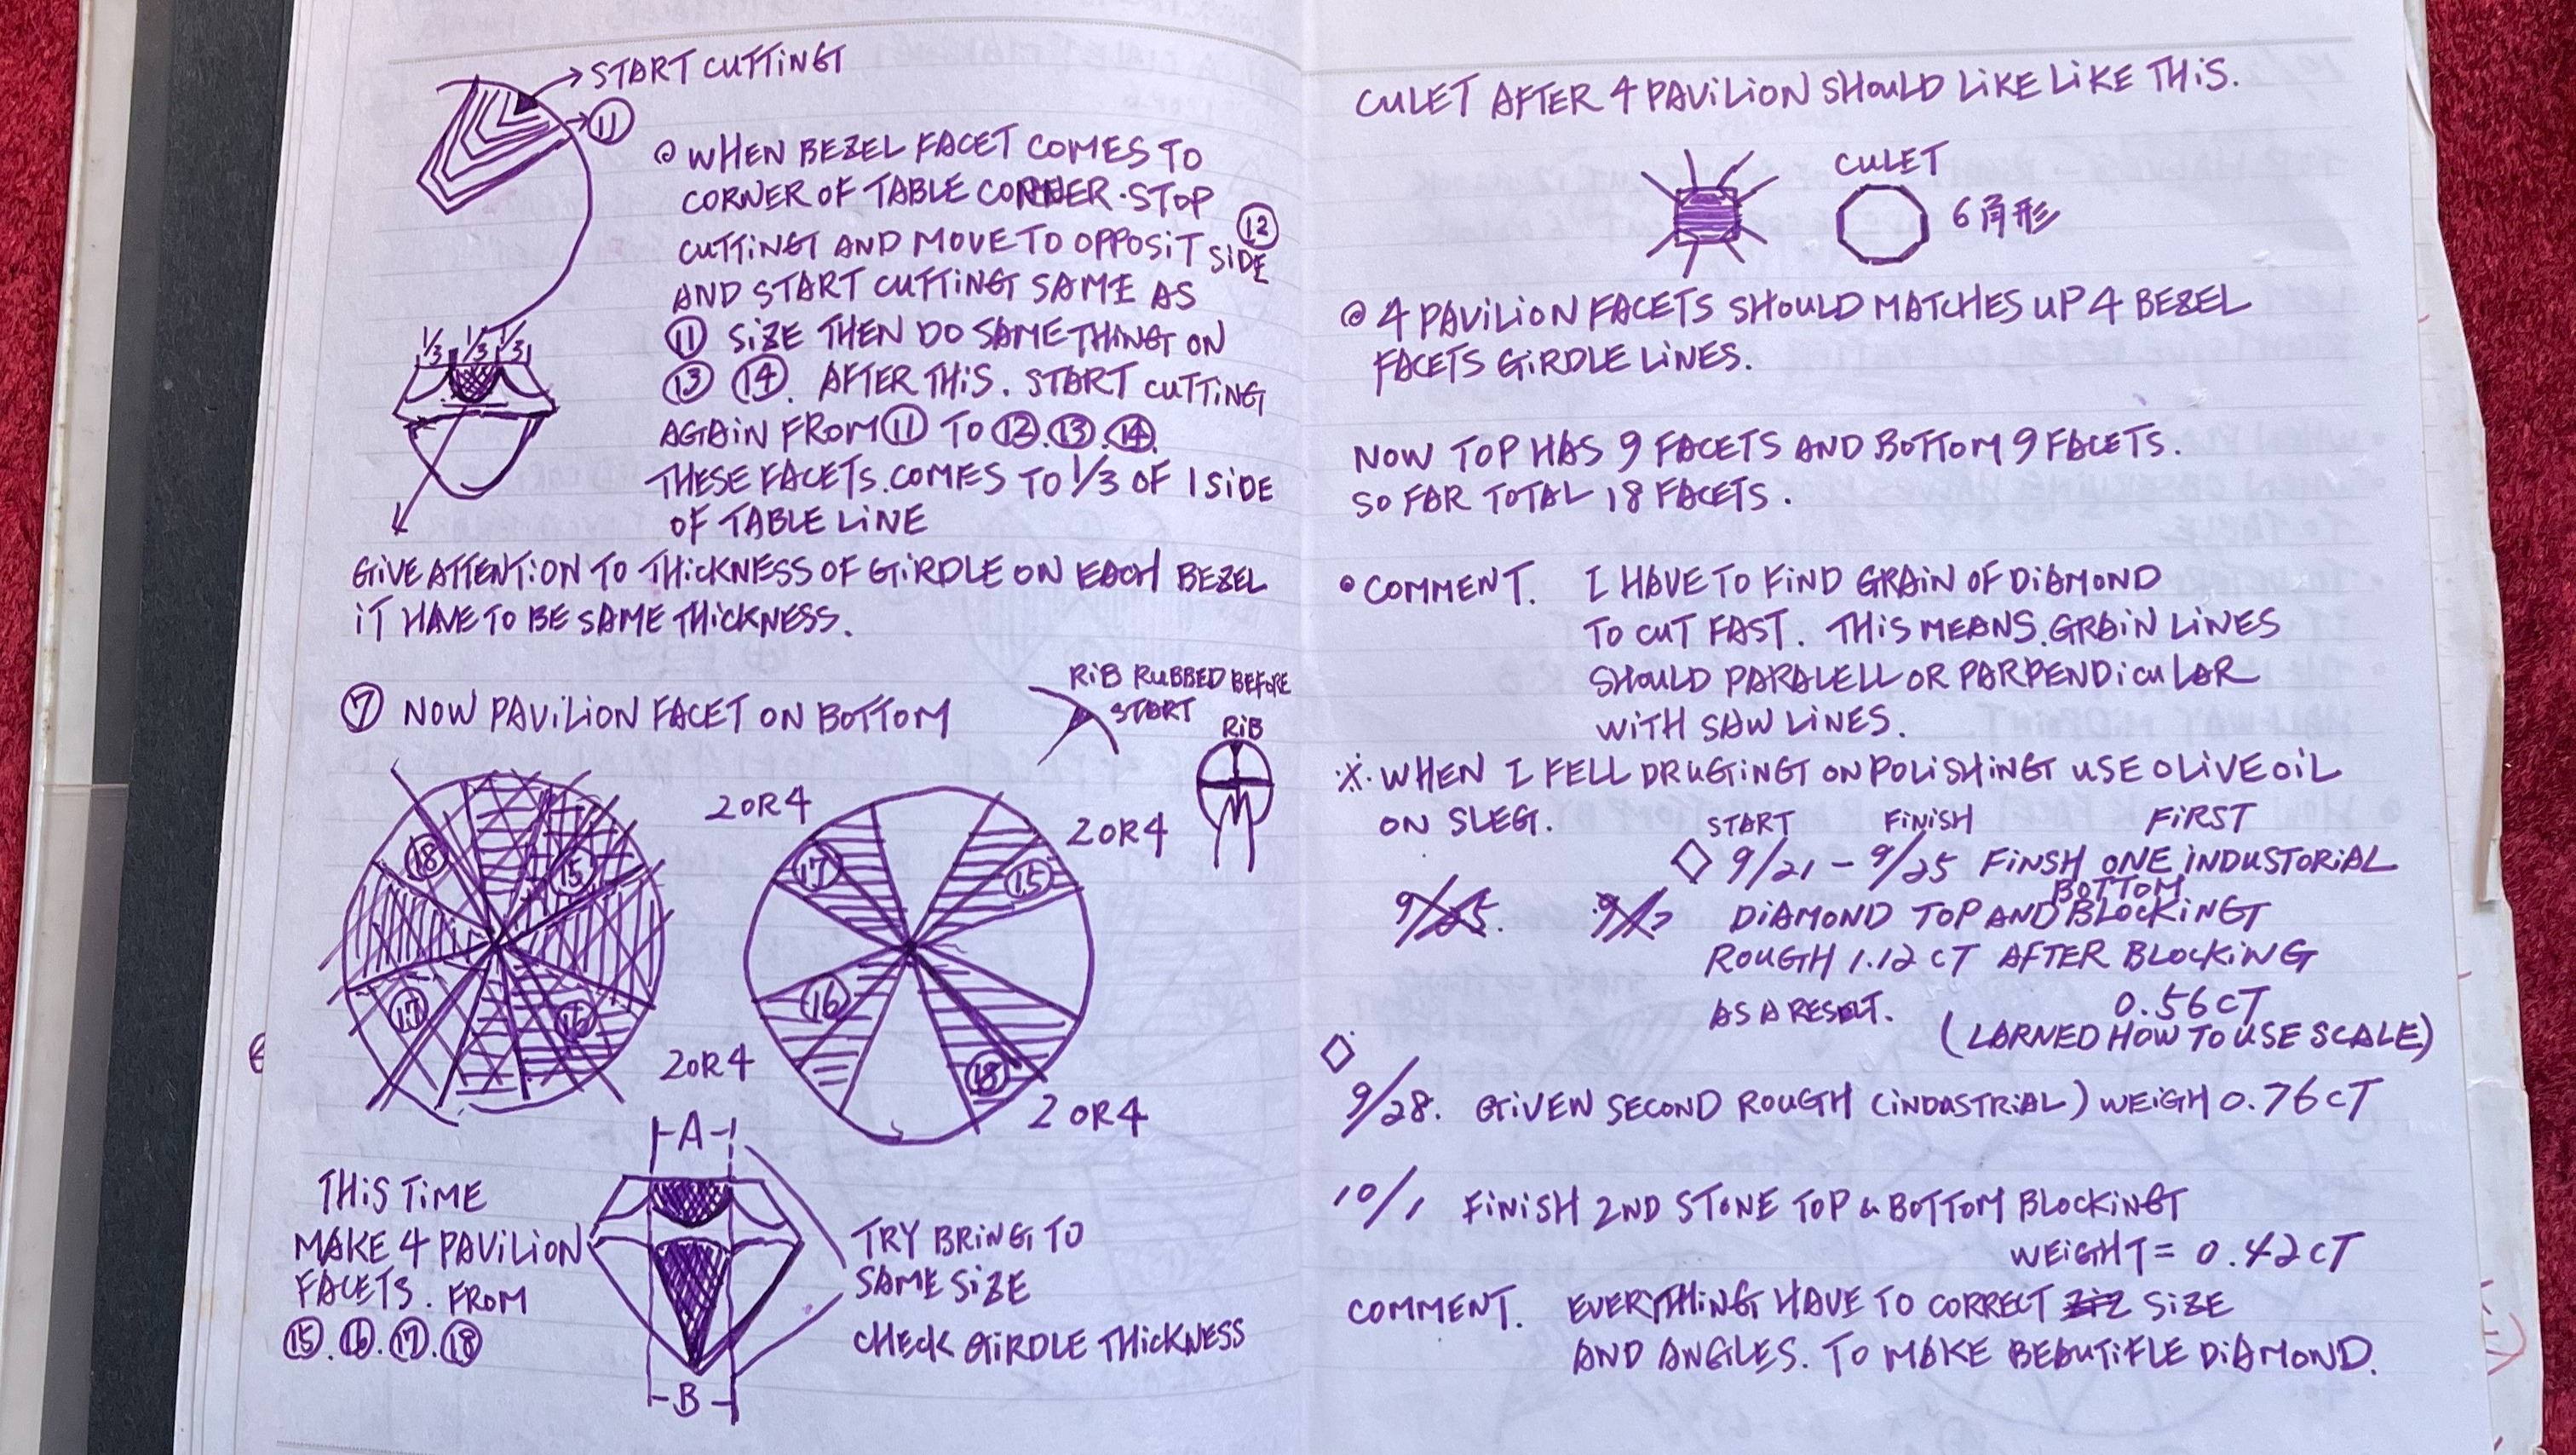 → START CUTTING
→ ⑪
◎ WHEN BEZEL FACET COMES TO
CORNER OF TABLE CORNER. STOP
CUTTING AND MOVE TO OPPOSIT SIDE ⑫
AND START CUTTING SAME AS
⑪ SIZE THEN DO SAME THING ON
⑬ ⑭. AFTER THIS. START CUTTING
AGAIN FROM ⑪ TO ⑫.⑬.⑭.
THESE FACETS. COMES TO 1/3 OF 1 SIDE
OF TABLE LINE
1/3 1/3 1/3
GIVE ATTENTION TO THICKNESS OF GIRDLE ON EACH BEZEL
IT HAVE TO BE SAME THICKNESS.
⑦ NOW PAVILION FACET ON BOTTOM
RIB RUBBED BEFORE
START
RIB
⑱ ⑮
⑰ ⑯
2 OR 4
2 OR 4
⑰ ⑮
⑯ ⑱
2 OR 4
2 OR 4
THIS TIME
MAKE 4 PAVILION
FACETS. FROM
⑮.⑯.⑰.⑱
A
B
TRY BRING TO
SAME SIZE
CHECK GIRDLE THICKNESS
CULET AFTER 4 PAVILION SHOULD LIKE LIKE THIS.
CULET
6角形
◎ 4 PAVILION FACETS SHOULD MATCHES UP 4 BEZEL
FACETS GIRDLE LINES.
NOW TOP HAS 9 FACETS AND BOTTOM 9 FACETS.
SO FAR TOTAL 18 FACETS.
• COMMENT. I HAVE TO FIND GRAIN OF DIAMOND
TO CUT FAST. THIS MEANS. GRAIN LINES
SHOULD PARALELL OR PARPENDICULAR
WITH SAW LINES.
※ WHEN I FELL DRUGING ON POLISHING USE OLIVE OIL
ON SLEG.
START FINISH FIRST
◇ 9/21 - 9/25 FINSH ONE INDUSTORIAL
DIAMOND TOP AND BOTTOM BLOCKING
ROUGH 1.12 CT AFTER BLOCKING
AS A RESULT. 0.56 CT
(LARNED HOW TO USE SCALE)
◇
9/28. GIVEN SECOND ROUGH (INDASTRIAL) WEIGH 0.76 CT
10/1 FINISH 2ND STONE TOP & BOTTOM BLOCKING
WEIGHT = 0.42 CT
COMMENT. EVERYTHING HAVE TO CORRECT SIZE
AND ANGLES. TO MAKE BEAUTIFLE DIAMOND.